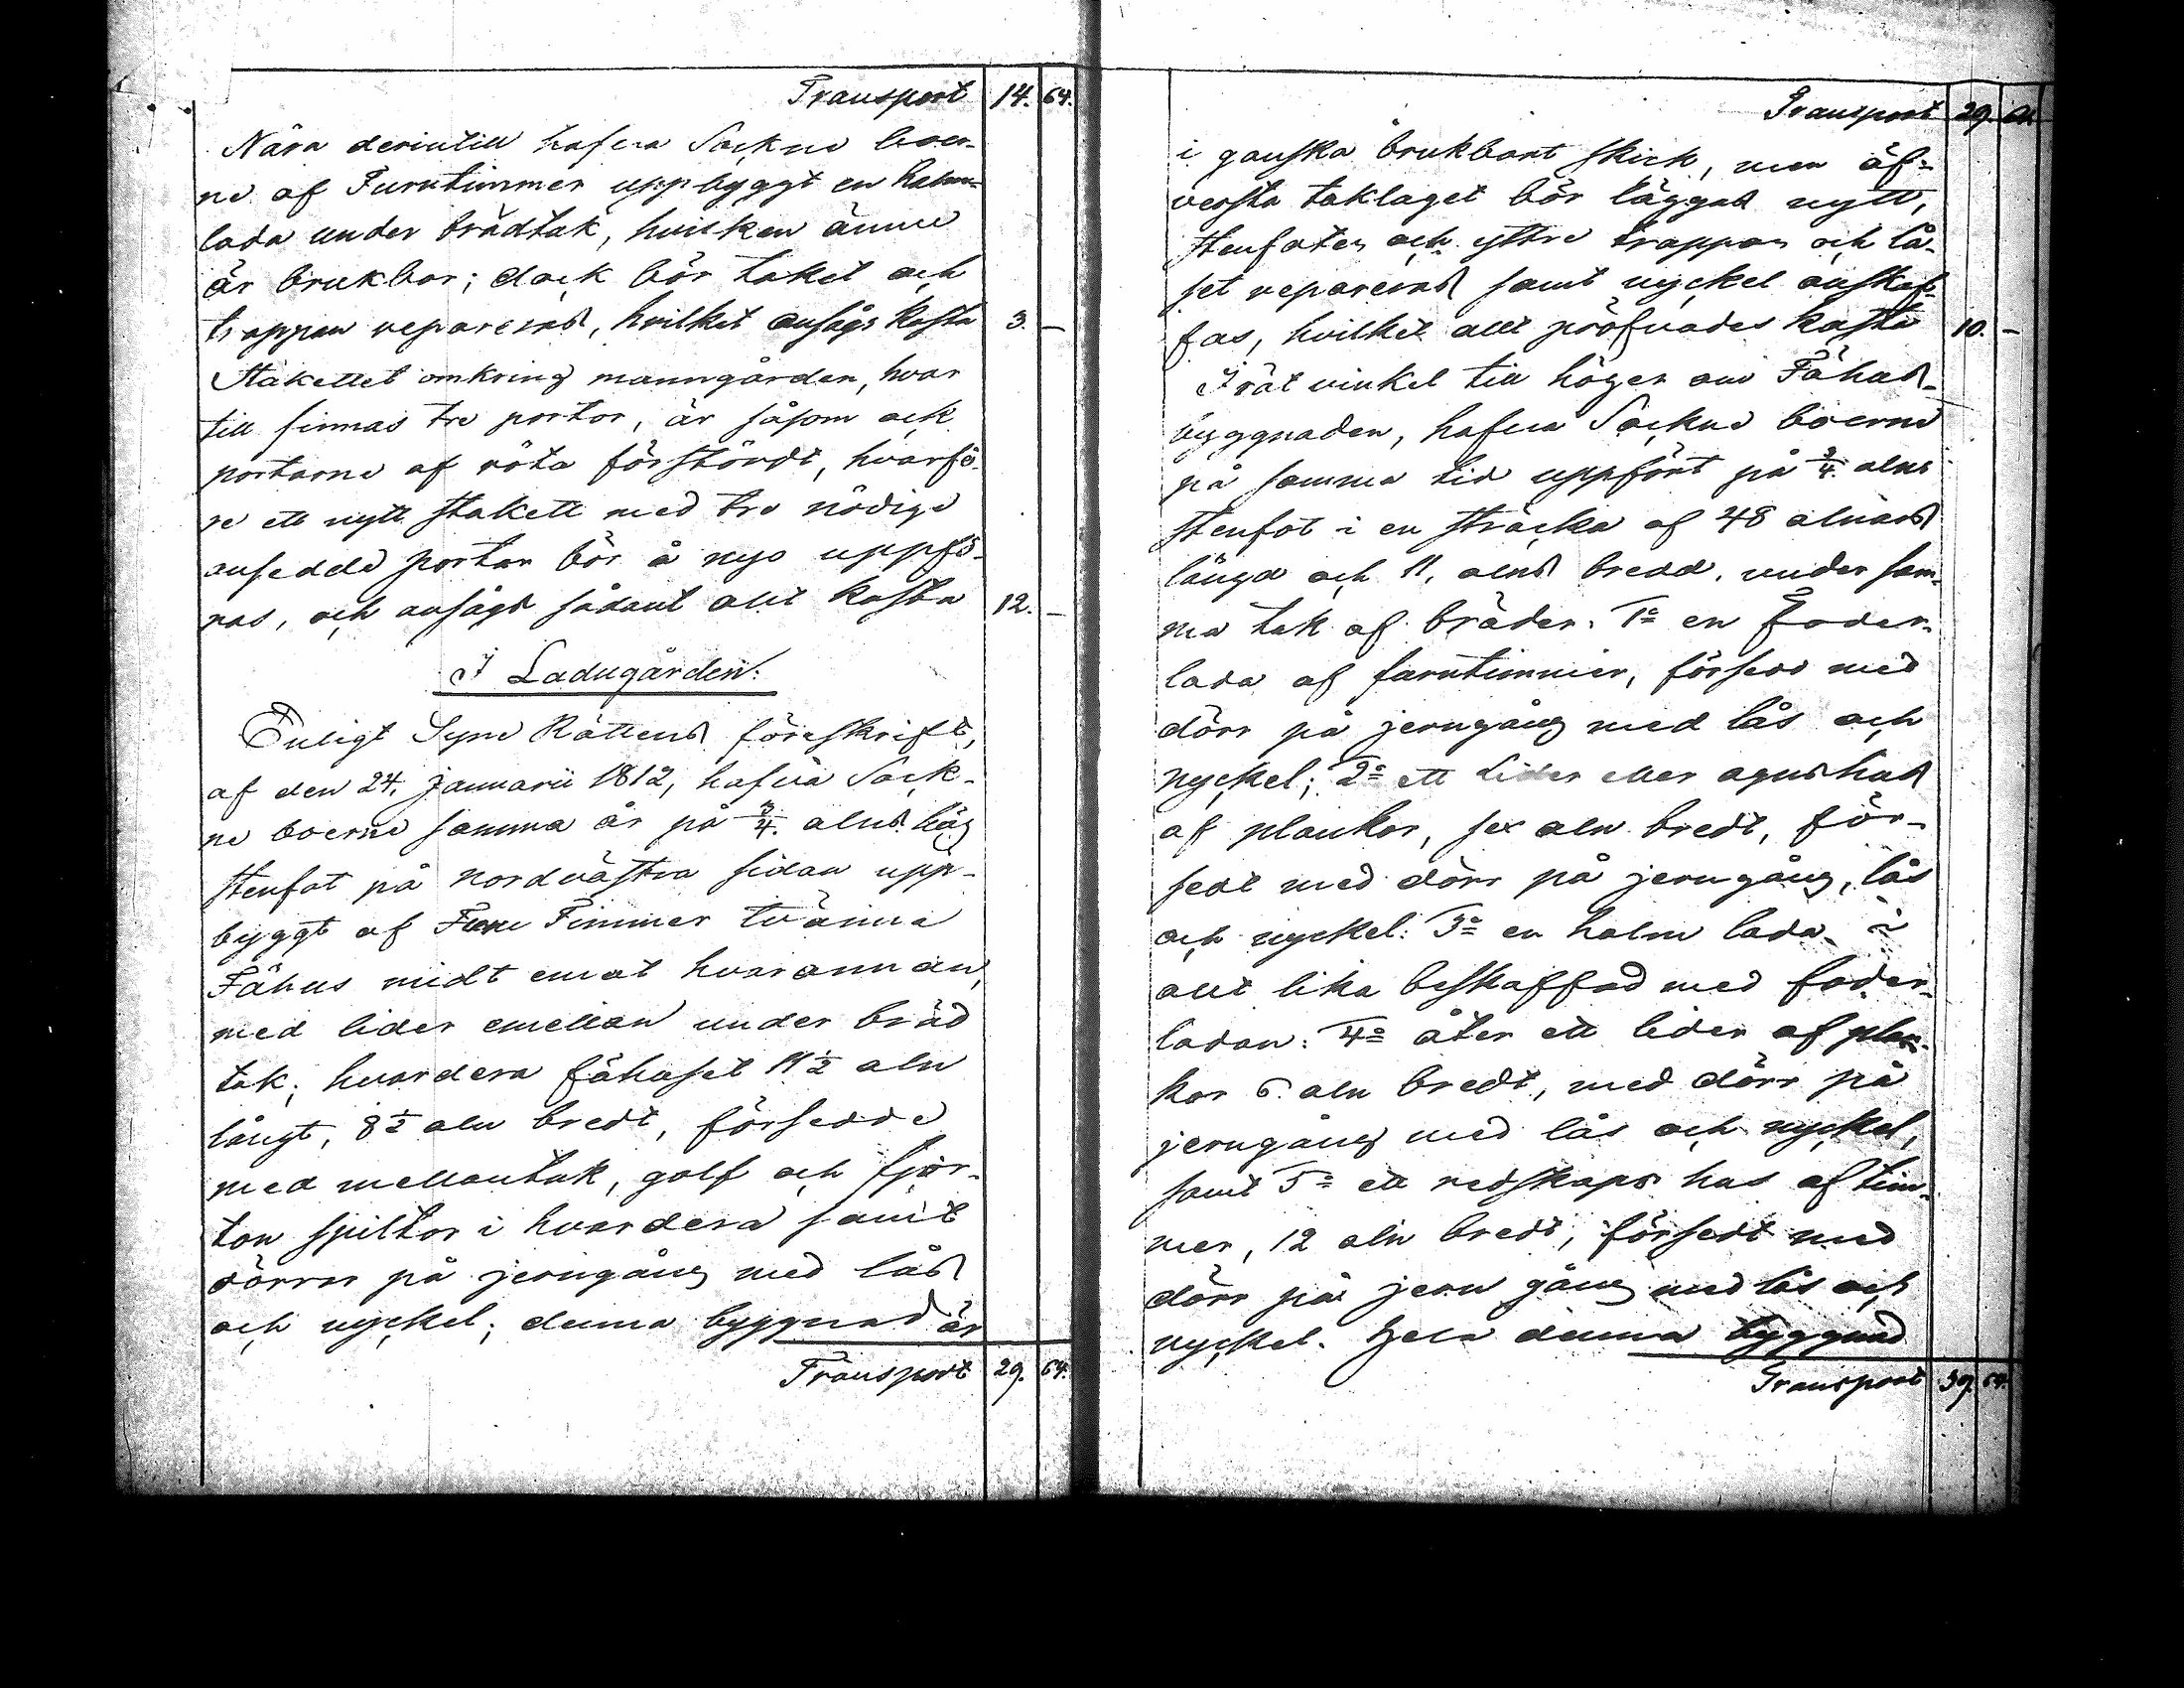 Transport 14. 64.
Nära derintill hafva Sockne boer-
ne af Furutimmer uppbyggt en halm-
lada under brädtak, hvilken ännu
är brukbar; dock bör taket och
trappan repareras, hvilket ansågs kosta 3. —
Staketet omkring manngården, hvar
till finnas tre portar, är såsom ock
portarne af röta förstördt, hvarfö-
re ett nytt stakett med tre nödige
ansedde portar bör å nyo uppfö-
ras, och ansågs sådant allt kosta 12. —
I Ladugården:
Enligt Syne Rättens föreskrift,
af den 24. Januarii 1812, hafva Sock-
ne boerne samma år på 3/4. alns hög
stenfot på nordvästra sidan upp-
byggt af Furu Timmer tvänna
Fähus midt emot hvarannan,
med lider emellan under bräd
tak; hvardera fähuset 11 1/2 aln
långt, 8 1/2 aln bredt, försedde
med mellantak, golf och fjor-
ton spiltor i hvardera samt
dörrar på jerngång med lås
och nyckel; denna byggnad är
Transport 29. 64.
Transport 29. 64
i ganska brukbart skick, men öf-
versta taklaget bör läggas nytt,
stenfoten och yttre trappan och lå-
set repareras samt nyckel anskaf-
fas, hvilket allt pröfvades kosta 10. —
I rät vinkel till höger om Fähus-
byggnaden, hafva Sockne boerne
på samma tid uppfört på 3/4. alns
stenfot i en sträcka af 48 alnars
längd och 11, alns bredd, under sam-
ma tak af bräder. 1o en foder-
lada af furutimmer, försedd med
dörr på jerngång med lås och
nyckel; 2o ett lider eller agnehus
af plankor, sex aln bredt, för-
sedt med dörr på jerngång, lås
och nyckel: 3o en halm lada, i
allt lika beskaffad med foder-
ladan: 4o åter ett lider af plan-
kor 6. aln bredt, med dörr på
jerngång med lås och nyckel,
samt 5o ett redskaps hus af tim-
mer, 12 aln bredt, försedt med
dörr på jern gång med lås och
nyckel. Hela denna byggnad
Transport 39. 64.